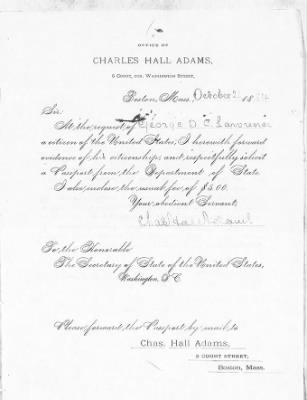 OFFICE OF
CHARLES HALL ADAMS,
5 COURT, COR. WASHINGTON STREET,
Boston, Mass., October 18
Sir
At the request of George D. C. Lawrence
a citizen of the United States, I herewith forward
evidence of his citizenship, and respectfully solicit
a Passport from the Department of State
I also inclose the usual fee of $5.00.
Your obedient Servant,
To, the Honorable
The Secretary of State of the United States,
Washington, D.C.
Please forward the Passport by mail to
Chas. Hall Adams,
5 COURT STREET,
BOSTON, MASS.